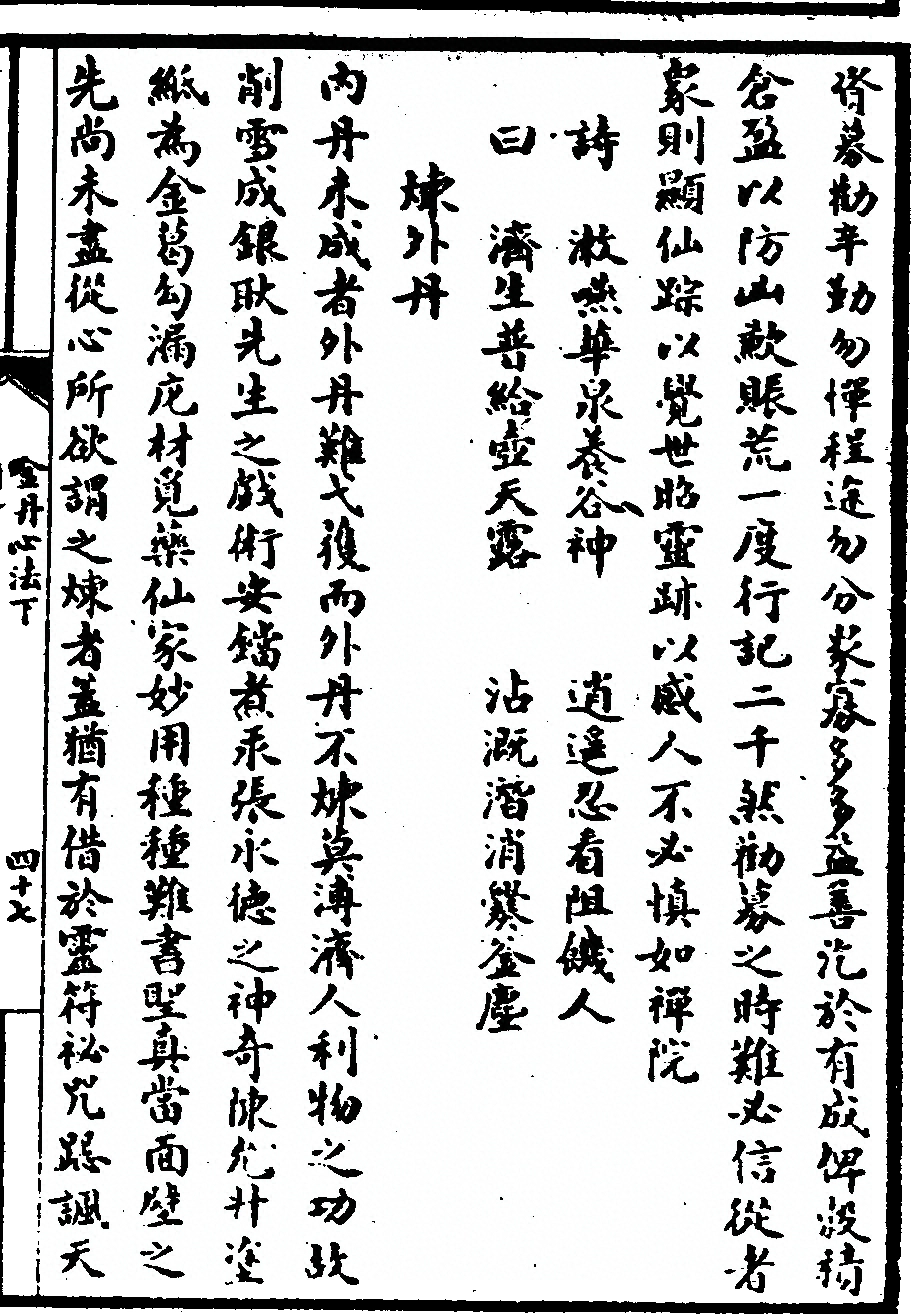 脊募勸辛勤勿憚程途勿分衆寡多多益善汔於有成俾穀積
倉盈以防凶歉賬荒一度行記二千然勸募之時難必信從者
衆則顯仙踪以覺世昭靈跡以感人不必慎如禪院
詩　漱嚥華泉養谷神　逍遥忍看阻饑人
曰　濟生普給壺天露　沾溉潛消爨釜塵
煉外丹
内丹未成者外丹難弋獲而外丹不煉莫溥濟人利物之功故
削雪成銀耿先生之戲術安鐺煮汞張永德之神奇陳允升塗
紙為金葛勾漏庀材覓藥仙家妙用種種難書聖真當面壁之
先尚未盡從心所欲謂之煉者蓋猶有借於靈符祕咒跽諷天
金丹心法下
四十七